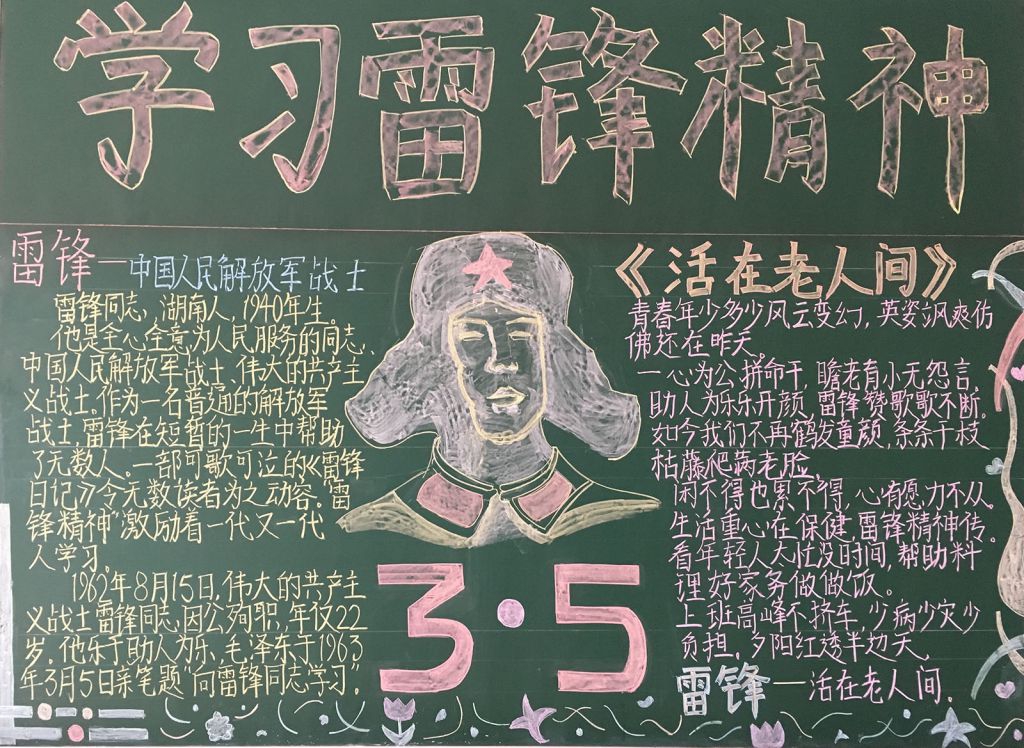 学习雷锋精神
雷锋—中国人民解放军战士
雷锋同志,湖南人,1940年生。
他是全心全意为人民服务的同志、
中国人民解放军战士、伟大的共产主
义战士。作为一名普通的解放军
战士,雷锋在短暂的一生中帮助
了无数人。一部可歌可泣的《雷锋
日记》令无数读者为之动容。"雷
锋精神"激励着一代又一代
人学习。
1962年8月15日,伟大的共产主
义战士雷锋同志因公殉职,年仅22
岁。他乐于助人为乐,毛泽东于1963
年3月5日亲笔题"向雷锋同志学习"。
3·5
《活在老人间》
青春年少多少风云变幻,英姿飒爽仿
佛还在昨天。
一心为公拼命干,瞻老有小无怨言。
助人为乐乐开颜,雷锋赞歌歌不断。
如今我们不再鹤发童颜,条条干枝
枯藤爬满老脸。
闲不得也累不得,心有愿力不从。
生活重心在保健,雷锋精神传。
看年轻人太忙没时间,帮助料
理好家务做做饭。
上班高峰不挤车,少病少灾少
负担。夕阳红透半边天。
雷锋—活在老人间。